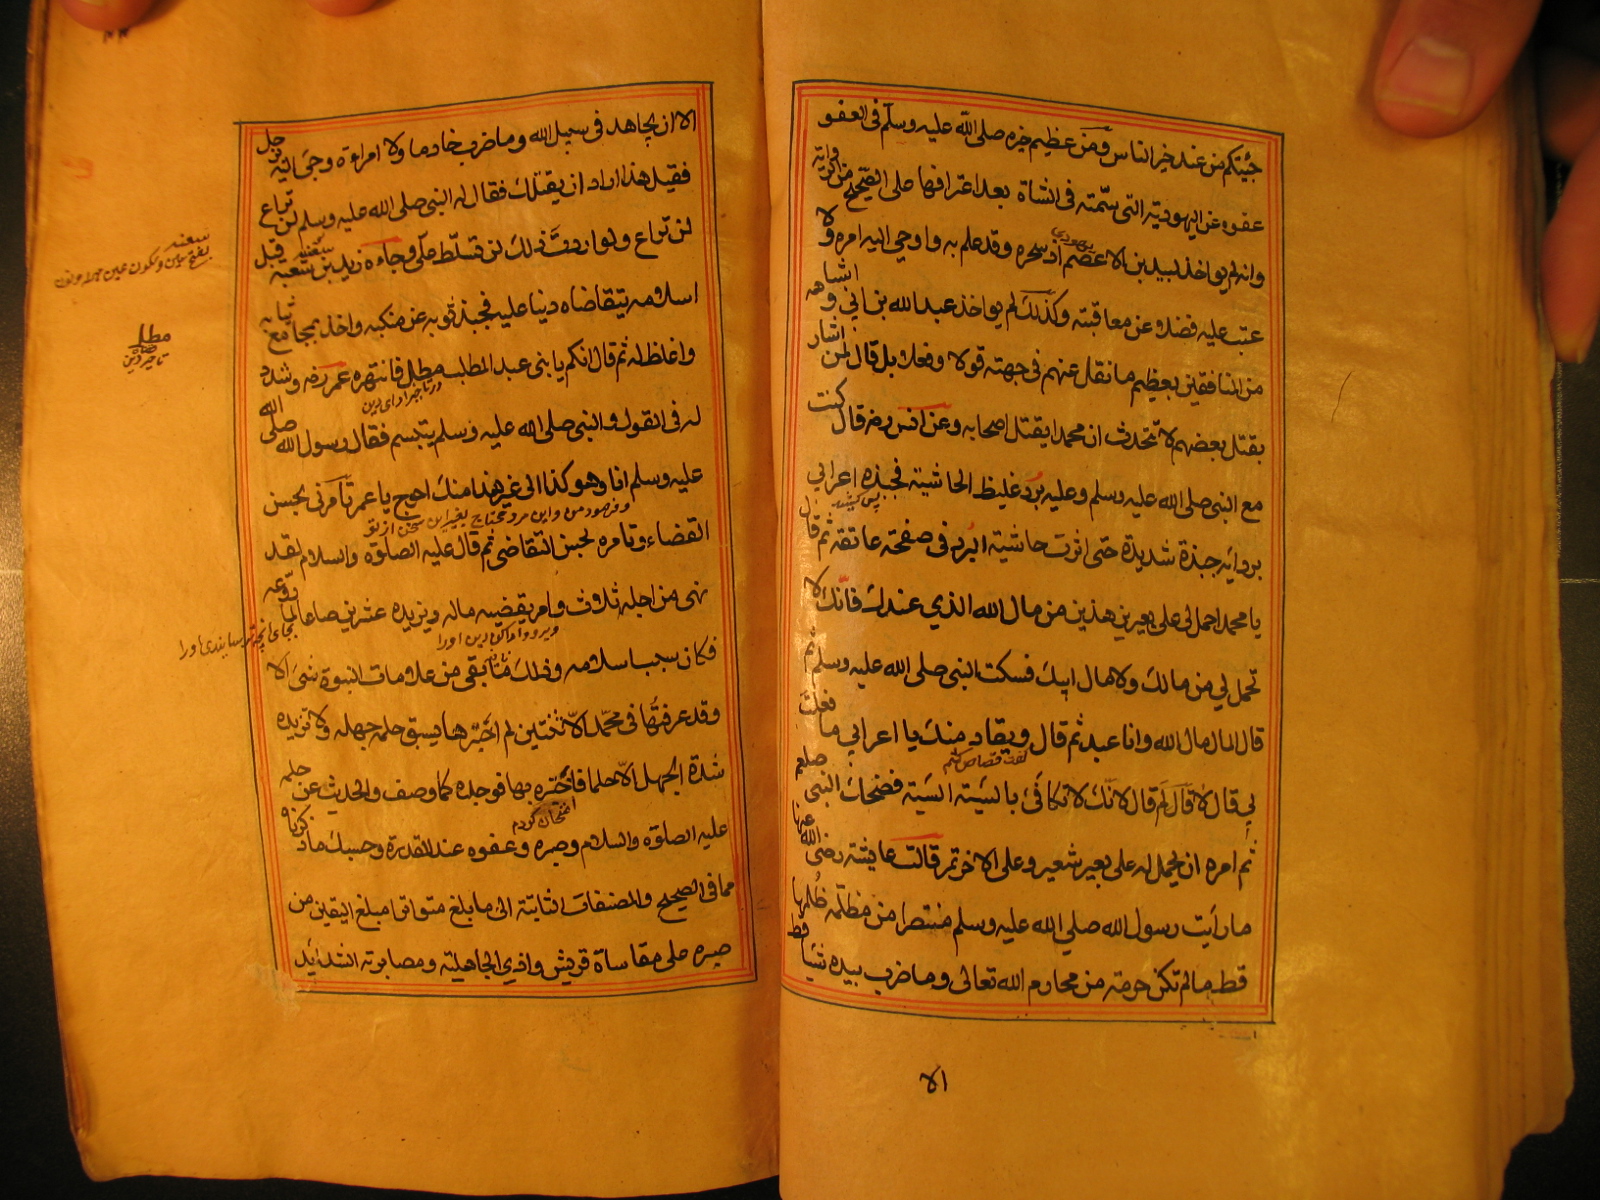 جئتكم من عند خير الناس ومن عظيم خبره صلى الله عليه وسلم في العفو
عفوه عن اليهودية التي سمّته في الشاة بعد اعترافها على الصحيح من الرواية
وانه لم يواخذ لبيد بن الاعصم اذ سحره وقد علم به واوحي اليه امره ولا
يهودي
عتب عليه فضلا عن معاقبته وكذلك لم يواخذ عبد الله بن ابي واشباهه
من المنافقين بعظيم ما نقل عنهم في جهته قولا وفعلا بل قال لمن اشار
بقتل بعضهم لا يتحدث ان محمدا يقتل اصحابه وعن انس رضه قال كنت
مع النبي صلى الله عليه وسلم وعليه برد غليظ الحاشية فجبذه اعرابي
پس كشيد
بردائه جبذة شديدة حتى اثرت حاشية البرد في صفحة عاتقه ثم قال
يا محمد احمل لي على بعيرين هذين من مال الله الذي عندك فانّك لا
تحمل لي من مالك ولا مال ابيك فسكت النبي صلى الله عليه وسلم ثم
قال المال مال الله وانا عبده ثم قال ويقاد منك يا اعرابي ما فعلت
گفت قصاص كنم
بي قال لا قال لم قال لانك لا تكافئ بالسيئة السيئة فضحك النبي صلعم
ثم امره ان يحمل له على بعير شعير وعلى الاخر تمر قالت عايشة رضي الله عنها
ما رأيت رسول الله صلى الله عليه وسلم منتصرا من مظلمة ظُلمها قط
قط ما لم تكن حرمة من محارم الله تعالى وما ضرب بيده شيئا
الا
الا ان يجاهد في سبيل الله وما ضرب خادما ولا امراءة وجئ اليه برجل
فقيل هذا اراد ان يقتلك فقال له النبي صلى الله عليه وسلم لن تراع
لن تراع ولو اردت ذلك لن تسلّط عليّ وجاءه زيد بن سعنة قبل
سعنه
بفتح سين وسكون عين
اسلامه يتقاضاه دينا عليه فجبذ ثوبه عن منكبه واخذ بمجامع ثيابه
مطل
واغلظ له ثم قال انكم يا بني عبد المطلب مطل فانتهره عمر رضه وشدد
له في القول والنبي صلى الله عليه وسلم يتبسم فقال رسول الله صلى الله
عليه وسلم انا وهو كنا الى غير هذا منك احوج يا عمر تأمرني بحسن
وفرمود من واين مرد محتاج بغير اين سخن از تو
القضاء وتامره بحسن التقاضي ثم قال عليه الصلوة والسلام لقد
بقي من اجله ثلاث وامر يقضيه ماله ويزيده عشرين صاعا لما روّعه
فكان سبب اسلامه وذلك ما بقي من علامات النبوة شئ الا
وقد عرفتها في محمّد الا ثنتين لم اخبرها يسبق حلمه جهله ولا تزيده
شدة الجهل الا حلما فاختبره بها فوجده كما وصف والحديث عن حلمه
امتحان كردم
عليه الصلوة والسلام وصبره وعفوه عند القدرة وحسبك ما ذكرناه
مما في الصحيح والمصنفات الثابتة الى ما بلغ متواترا مبلغ اليقين من
صبره على مقاساة قريش واذي الجاهلية ومصابرته الشدائد